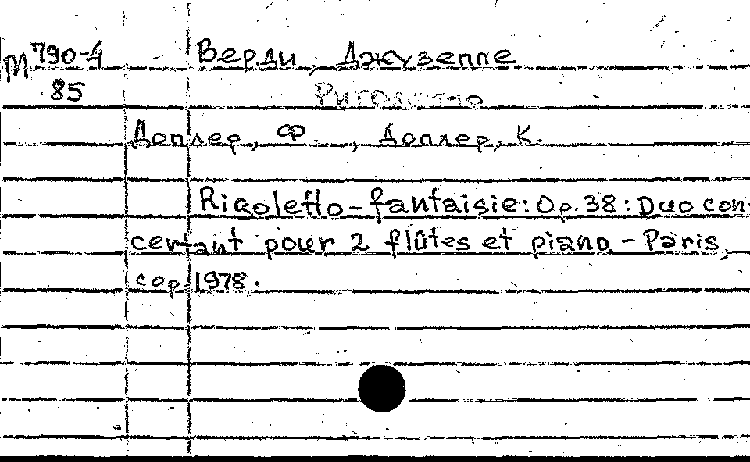 М 790-4 Верди, Джузеппе
85 Риголетто
Доплер, Ф. , Доплер, К.
Rigoletto-fantaisie: Op. 38: Duo con-
certant pour 2 flûtes et piano – Paris,
cop. 1978.